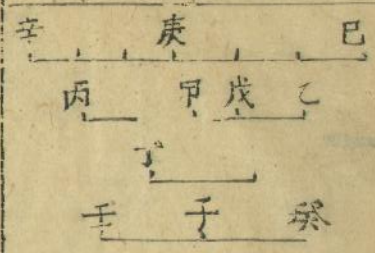 辛 庚 巳
丙 甲 戊 乙
丁
壬 子 癸